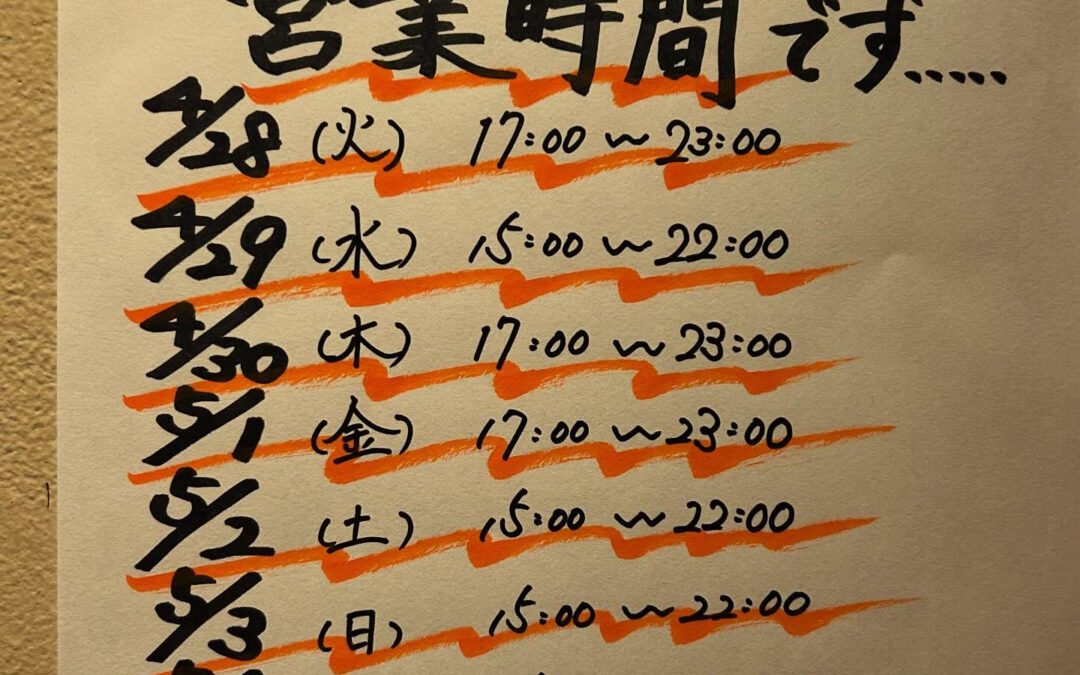 営業時間です.....
4/28 (火) 17:00 ～ 23:00
4/29 (水) 15:00 ～ 22:00
4/30 (木) 17:00 ～ 23:00
5/1 (金) 17:00 ～ 23:00
5/2 (土) 15:00 ～ 22:00
5/3 (日) 15:00 ～ 22:00